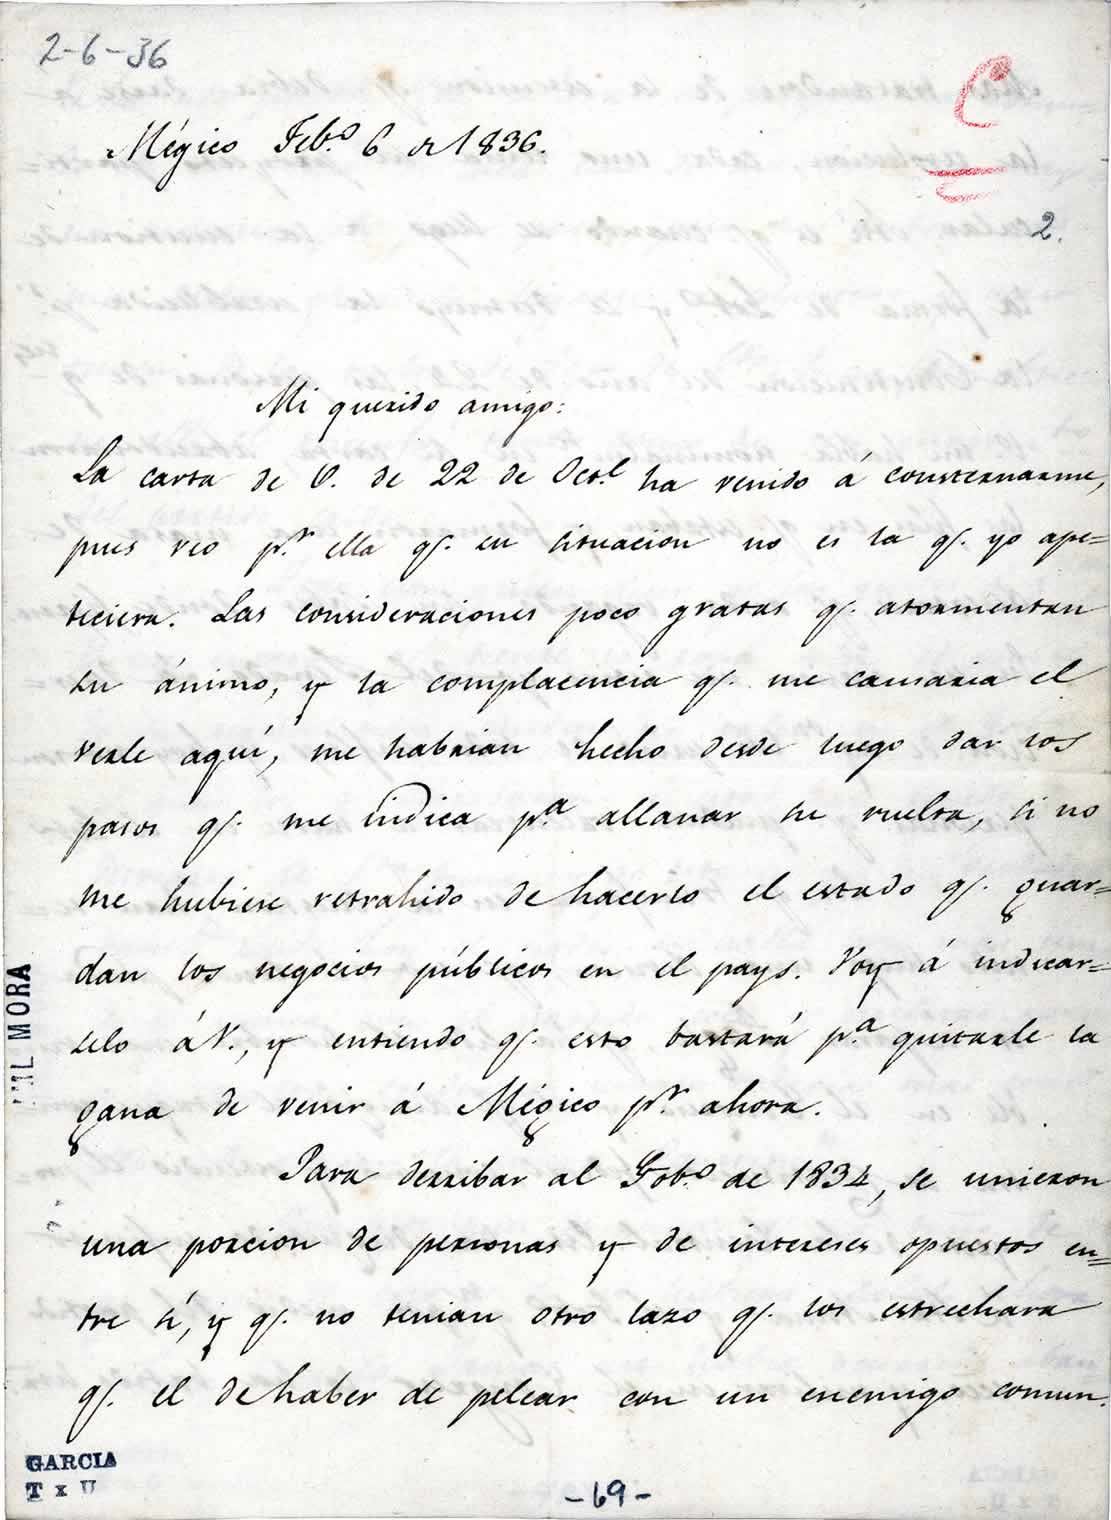 2-6-36
Mégico Feb.º 6 de 1836.
2.
Mi querido amigo:
La carta de V. de 22 de Oct.e ha venido á consternarme,
pues veo p.r ella q.e su situacion no es la q.e yo ape=
teciera. Las consideraciones poco gratas q.e atormentan
su ánimo, y la complacencia q.e me causaria el
verle aquí, me habrian hecho desde luego dar los
pasos q.e me indica p.a allanar su vuelta, si no
me hubiese retrahido de hacerlo el estado q.e guar=
dan los negocios públicos en el pays. Voy á indicar=
selo á V., y entiendo q.e esto bastará p.a quitarle la
gana de venir á Mégico p.r ahora.
Para derribar al Gob.º de 1834, se unieron
una porcion de personas y de intereses opuestos en=
tre sí, y q.e no tenian otro lazo q.e los estrechara
q.e el de haber de pelear con un enemigo comun.
MORA
GARCIA
T x U
-69-